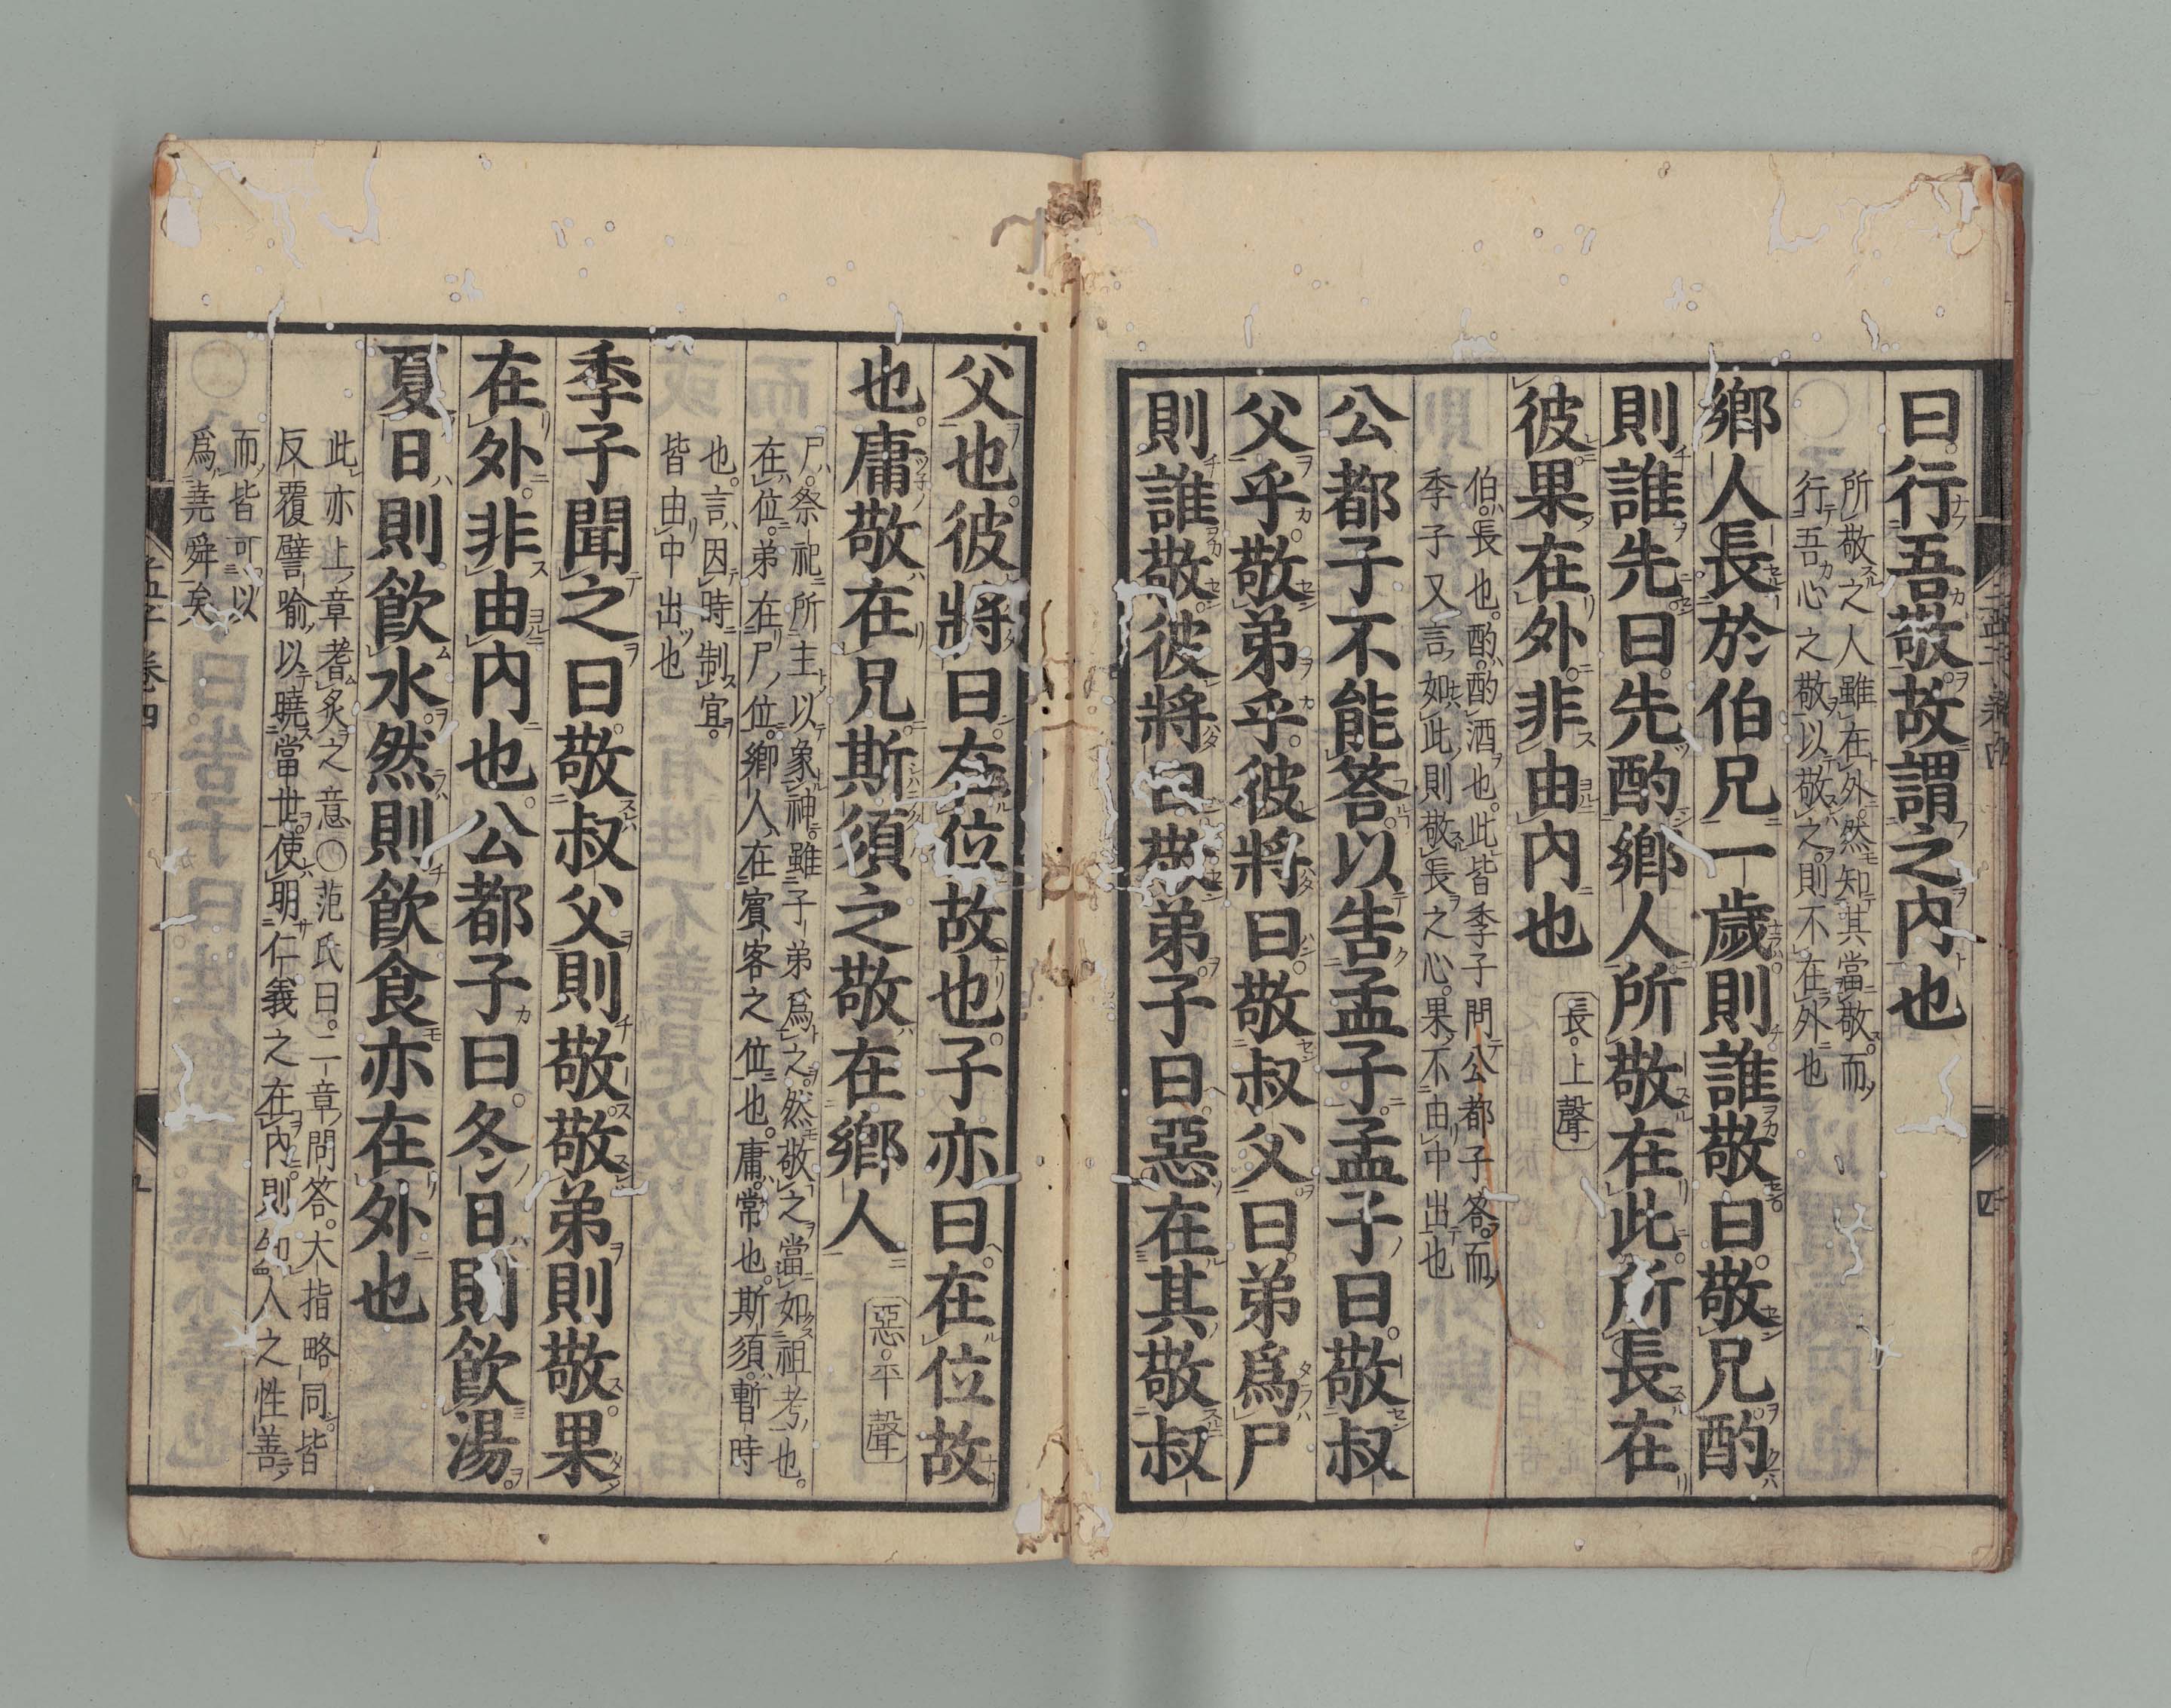 曰行吾敬故謂之内也
所敬之人雖在外然知其當敬而
行吾心之敬以敬之則不在外也
鄉人長於伯兄一歲則誰敬曰敬兄酌
則誰先曰先酌鄉人所敬在此所長在
彼果在外非由内也
長上聲
伯長也酌酌酒也此皆季子問公都子答而
季子又言如此則敬長之心果不由中出也
公都子不能答以告孟子孟子曰敬叔
父乎敬弟乎彼將曰敬叔父曰弟爲尸
則誰敬彼將曰敬弟子曰惡在其敬叔
父也彼將曰在位故也子亦曰在位故
也庸敬在兄斯須之敬在鄉人
惡平聲
尸祭祀所主以象神雖子弟爲之然敬之當如祖考也
在位弟在尸位鄉人在賓客之位也庸常也斯須暫時
也言因時制宜
皆由中出也
季子聞之曰敬叔父則敬敬弟則敬果
在外非由内也公都子曰冬日則飮湯
夏日則飮水然則飮食亦在外也
此亦上章耆炙之意○范氏曰二章問答大指略同皆
反覆譬喻以曉當世使明仁義之在内則知人之性善
而皆可以
爲堯舜矣
孟子卷四